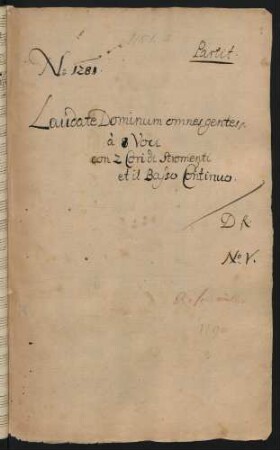 Partit.
No: 1281
Laudate Dominum omnes gentes.
à 8 Voci
con 2 Cori di Stromenti
et il Basso Continuo.
No. V.